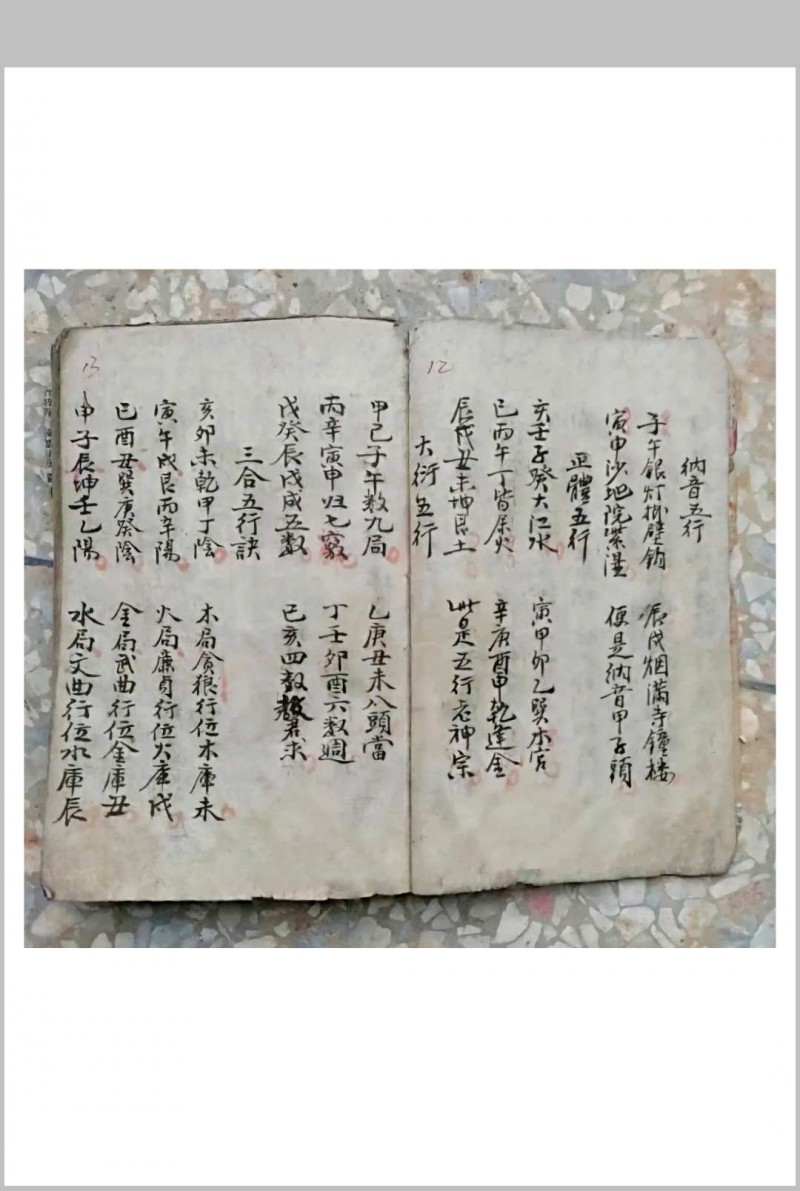 12
納音五行
子午銀灯掛壁鈎 辰戌烟滿寺鐘楼
寅申沙地院柴湿 便是納音甲子頭
正體五行
亥壬子癸大江水 寅甲卯乙巽木宫
巳丙午丁皆属火 辛庚酉申乾逢金
辰戌丑未坤艮土 此是五行老神宗
大衍五行
13
甲己子午数九局 乙庚丑未八頭當
丙辛寅申归七竅 丁壬卯酉六数週
戊癸辰戌成五数 己亥四数君求
三合五行訣
亥卯未乾甲丁陰 木局貪狼行位木庫未
寅午戌艮丙辛陽 火局廉貞行位火庫戌
巳酉丑巽庚癸陰 金局武曲行位金庫丑
申子辰坤壬乙陽 水局文曲行位水庫辰